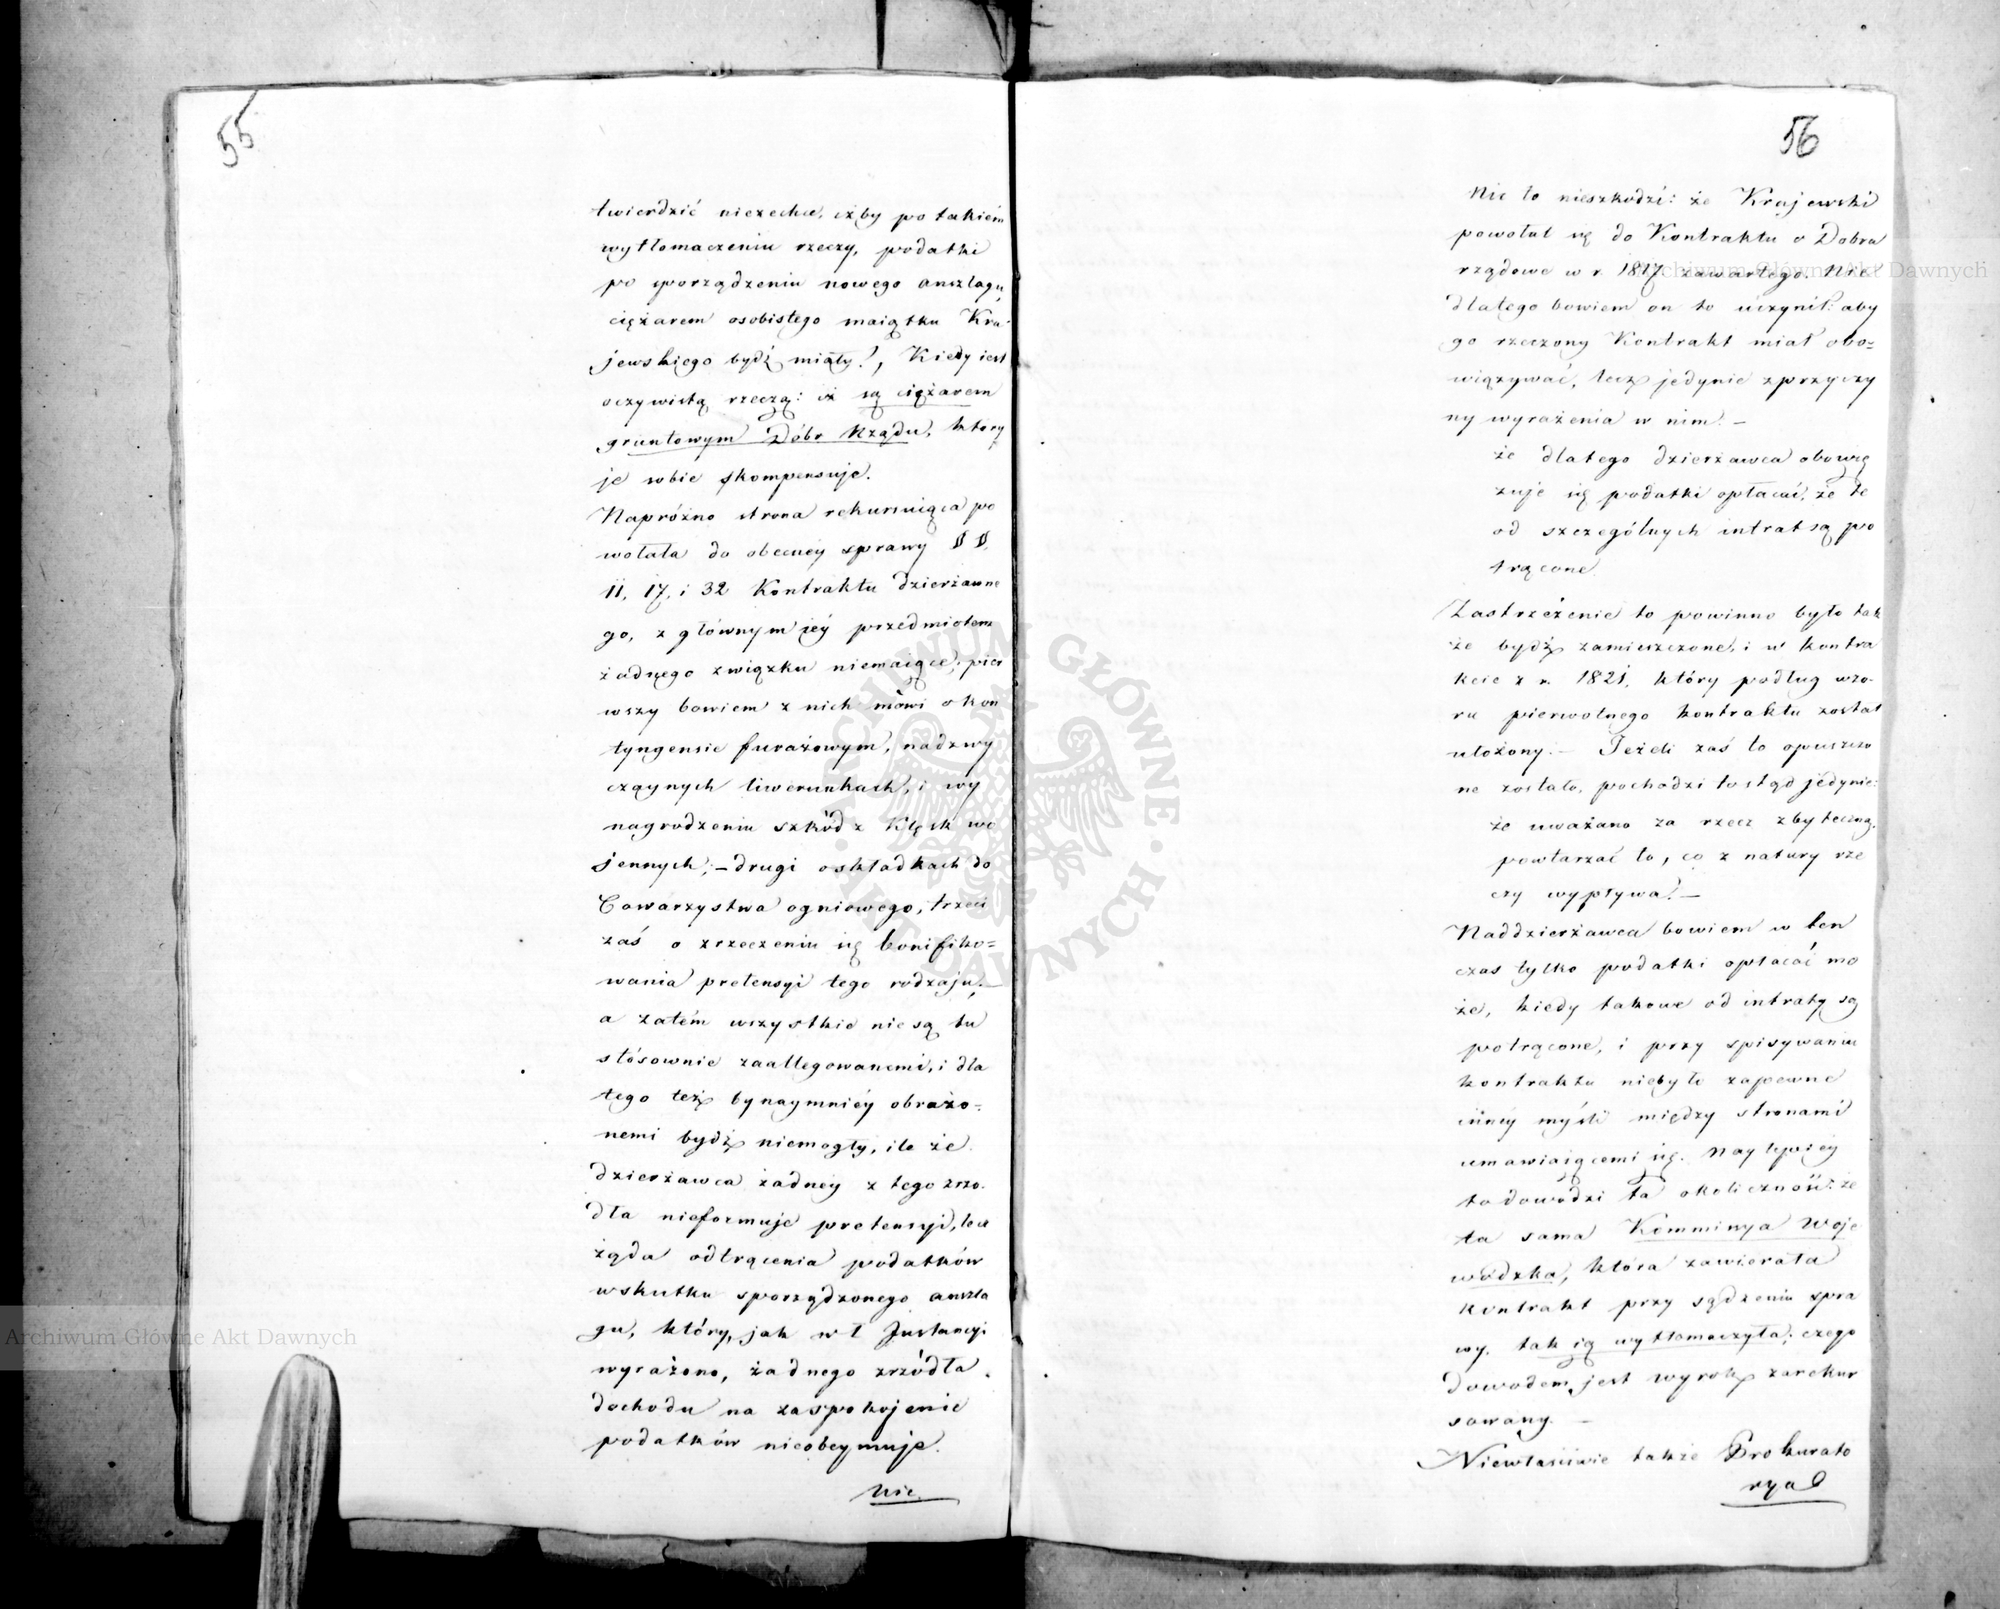 55
twierdzić niezechce, iżby po takiém
wytłomaczeniu rzeczy, podatki
po sporządzeniu nowego anszlagu,
ciężarem osobistego maiątku Kra-
jewskiego bydź miały?, Kiedy iest
oczywistą rzeczą: iż są ciężarem
gruntowym Dóbr Rządu, który
je sobie skompensuje.
Napróżno strona rekursuiąca po
wołała do obecnéy sprawy §§.
11, 17, i 32 Kontraktu dzierżawne
go, z głównym iéy przedmiotem
żadnego związku niemaiące; pier
wszy bowiem z nich mówi o kon
tyngensie furażowym, nadzwy
czaynych liwerunkach, i wy
nagrodzeniu szkód z klęsk wo
jennych; – drugi o składkach do
Towarzystwa ogniowego, trzeci
zaś o zrzeczeniu się bonifiko=
wania pretensyi tego rodzaju. –
a zatém wszystkie nie są tu
stósownie zaallegowanemi, i dla
tego też bynaymniéy obrażo=
nemi bydź niemogły, ile że
dzierżawca żadney z tego zrzo-
dła nieformuje pretensyi, lecz
żąda odtrącenia podatków
wskutku sporządzonego anszla
gu, który, jak w I Instancyi
wyrażono, żadnego zrzódła
dochodu na zaspokojenie
podatków nieobeymuje.
Nic
56
Nic to nieszkodzi: że Krajewski
powołał się do Kontraktu o Dobra
rządowe w r. 1817 zawartego. Nie
dlatego bowiem on to uczynił: aby
go rzeczony Kontrakt miał obo=
wiązywać, lecz jedynie z przyczy
ny wyrażenia w nim: –
że dlatego dzierżawca obowię
zuje się podatki opłacać, że te
od szczególnych intrat są po
trącone.
Zastrzeżenie to powinno było tak
że bydź zamieszczone, i w kontra
kcie z r. 1821, który podług wzo-
ru pierwotnego kontraktu został
ułożony: – Jeżeli zaś to opuszczo
ne zostało, pochodzi to stąd jedynie:
że uważano za rzecz zbyteczną,
powtarzać to, co z natury rze
czy wypływa. –
Naddzierżawca bowiem w ten
czas tylko podatki opłacać mo
że, kiedy takowe od intraty są
potrącone, i przy spisywaniu
kontraktu niebyło zapewne
innéy myśli między stronami
umawiaiącemi się. Naylepiéy
to dowodzi ta okoliczność: że
ta sama Kommissya Woje
wódzka, która zawierała
kontrakt przy sądzeniu spra
wy, tak ią wytłomaczyła; czego
dowodem jest wyrok zarekur
sowany. –
Niewłaściwie także Prokurato
ryal
Archiwum Główne Akt Dawnych
Archiwum Główne Akt Dawnych
ARCHIWUM GŁÓWNE AKT DAWNYCH